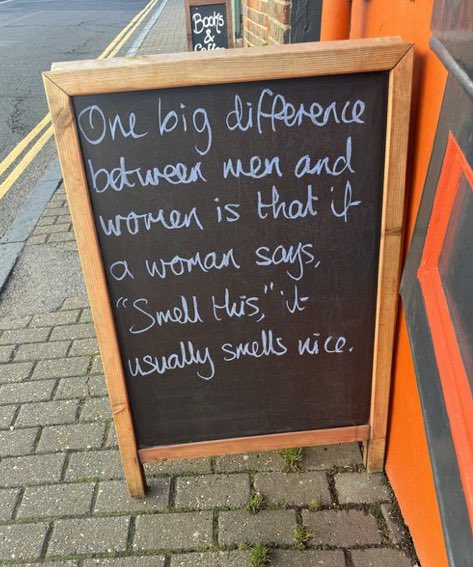 Books
&
Coffee
One big difference
between men and
women is that if
a woman says,
"Smell this," it
usually smells nice.